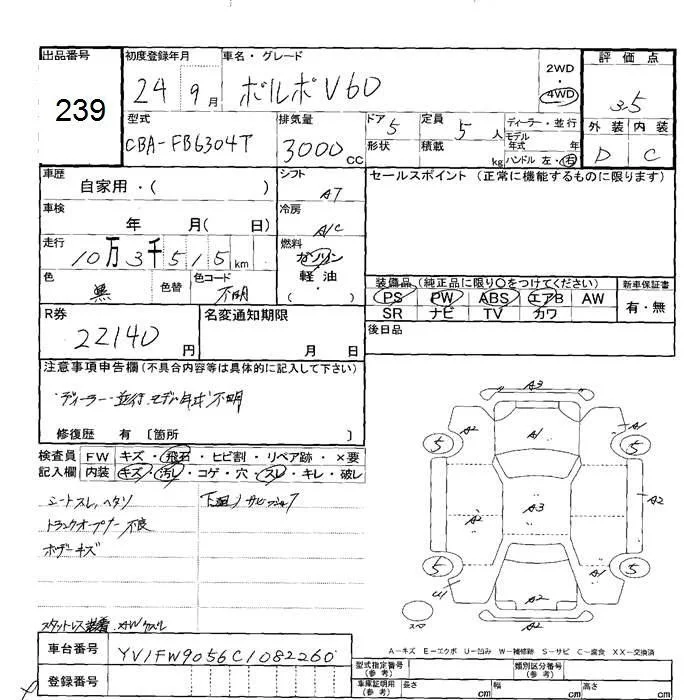 出品番号
239
初度登録年月
24 9月
車名・グレード
ボルボV60
2WD
・
4WD
評価点
3.5
型式
CBA-FB6304T
排気量
3000cc
ドア 5
形状
定員 5人
積載 kg
ディーラー・並行
モデル年式 年
ハンドル 左・右
外装 内装
D C
車歴
自家用・( )
シフト
AT
セールスポイント (正常に機能するものに限ります)
車検
年 月( 日)
冷房
A/C
走行
10万3千515km
燃料
ガソリン
・
軽油
・
( )
色
黒
色替
色コード
不明
装備品 (純正品に限り○をつけてください)
PS PW ABS エアB AW
SR ナビ TV カワ
新車保証書
有・無
R券
22140円
名変通知期限
月 日
後日品
注意事項申告欄(不具合内容等は具体的に記入して下さい)
ディーラー・並行、モデル年式不明
修復歴 有 〔箇所 〕
検査員記入欄
FW キズ・飛石・ヒビ割・リペア跡・×要
内装 キズ・汚レ・コゲ・穴・スレ・キレ・破レ
シートスレ、ヘタリ
下廻りサビ
トランクオープナー不良
ボデーキズ
スタットレス装着
A3
A2 A1 A1
5 5
A2
A2 A3
A1
5 5
U1
A2
A2
スペ
A-キズ E-エクボ U-凹み W-補修跡 S-サビ C-腐食 XX-交換済
車台番号
YV1FW9056C1082260
登録番号
型式指定番号
(参考)
類別区分番号
(参考)
車庫証明用
(参考)
長さ cm
幅 cm
高さ cm